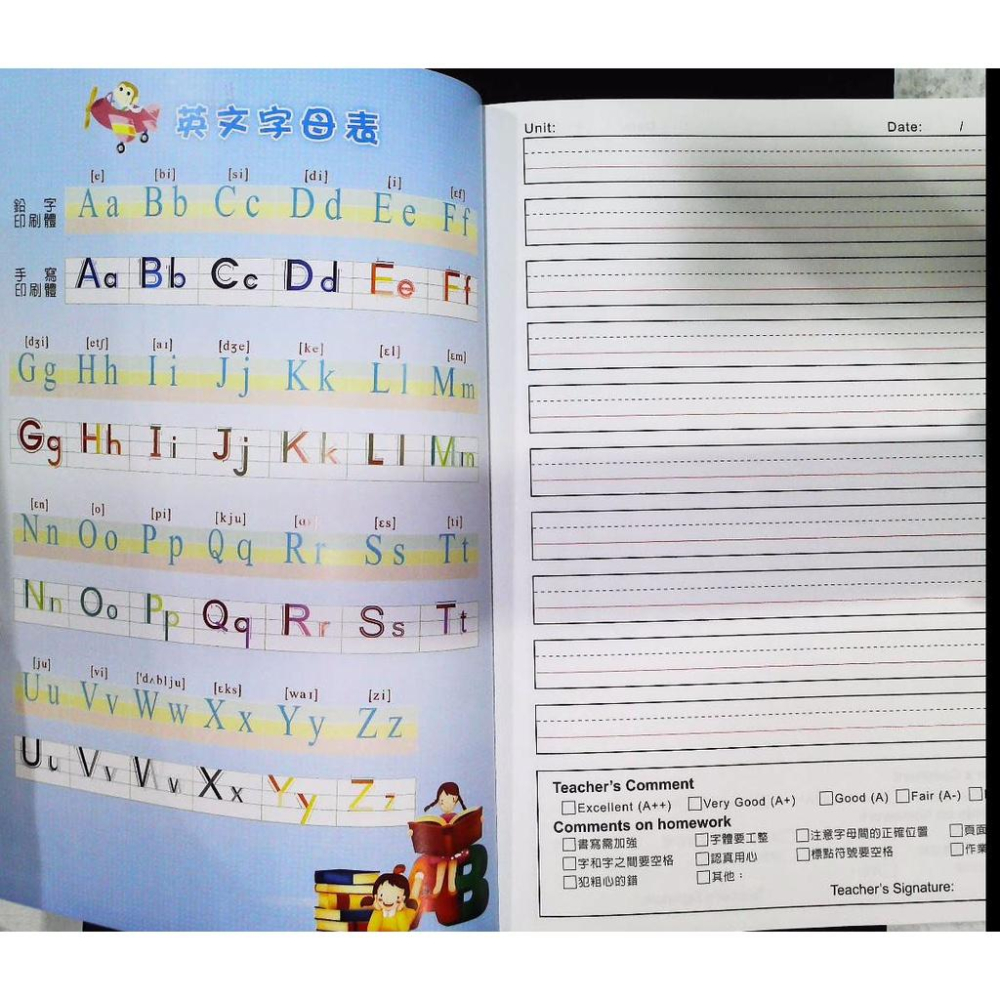 英文字母表
[e] [bi] [si] [di] [i] [ɛf]
鉛字印刷體 Aa Bb Cc Dd Ee Ff
手寫印刷體 Aa Bb Cc Dd Ee Ff
[dʒi] [etʃ] [aɪ] [dʒe] [ke] [ɛl] [ɛm]
Gg Hh Ii Jj Kk Ll Mm
Gg Hh Ii Jj Kk Ll Mm
[ɛn] [o] [pi] [kju] [ɛs] [ti]
Nn Oo Pp Qq Rr Ss Tt
Nn Oo Pp Qq Rr Ss Tt
[ju] [vi] [ˈdʌblju] [ɛks] [waɪ] [zi]
Uu Vv Ww Xx Yy Zz
Uu Vv Ww Xx Yy Zz
AB
Unit: Date: /
Teacher's Comment
□Excellent (A++) □Very Good (A+) □Good (A) □Fair (A-) □
Comments on homework
□書寫需加強 □字體要工整 □注意字母間的正確位置 □頁面
□字和字之間要空格 □認真用心 □標點符號要空格 □作業
□犯粗心的錯 □其他：
Teacher's Signature: